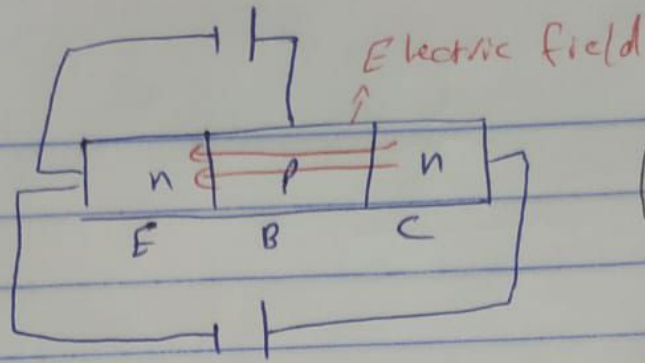 Electric field
n p n
E B C